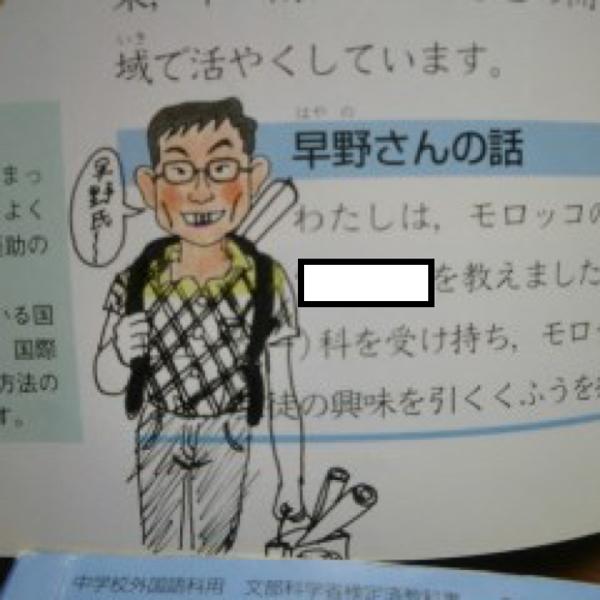 域で活やくしています。
いき
はやの
早野さんの話
早野氏~
わたしは,モロッコの
を教えました
科を受け持ち,モロッ
徒の興味を引くくふうを
まっ
よく
助の
いる国
国際
方法の
す。
中学校外国語科用 文部科学省検定済教科書